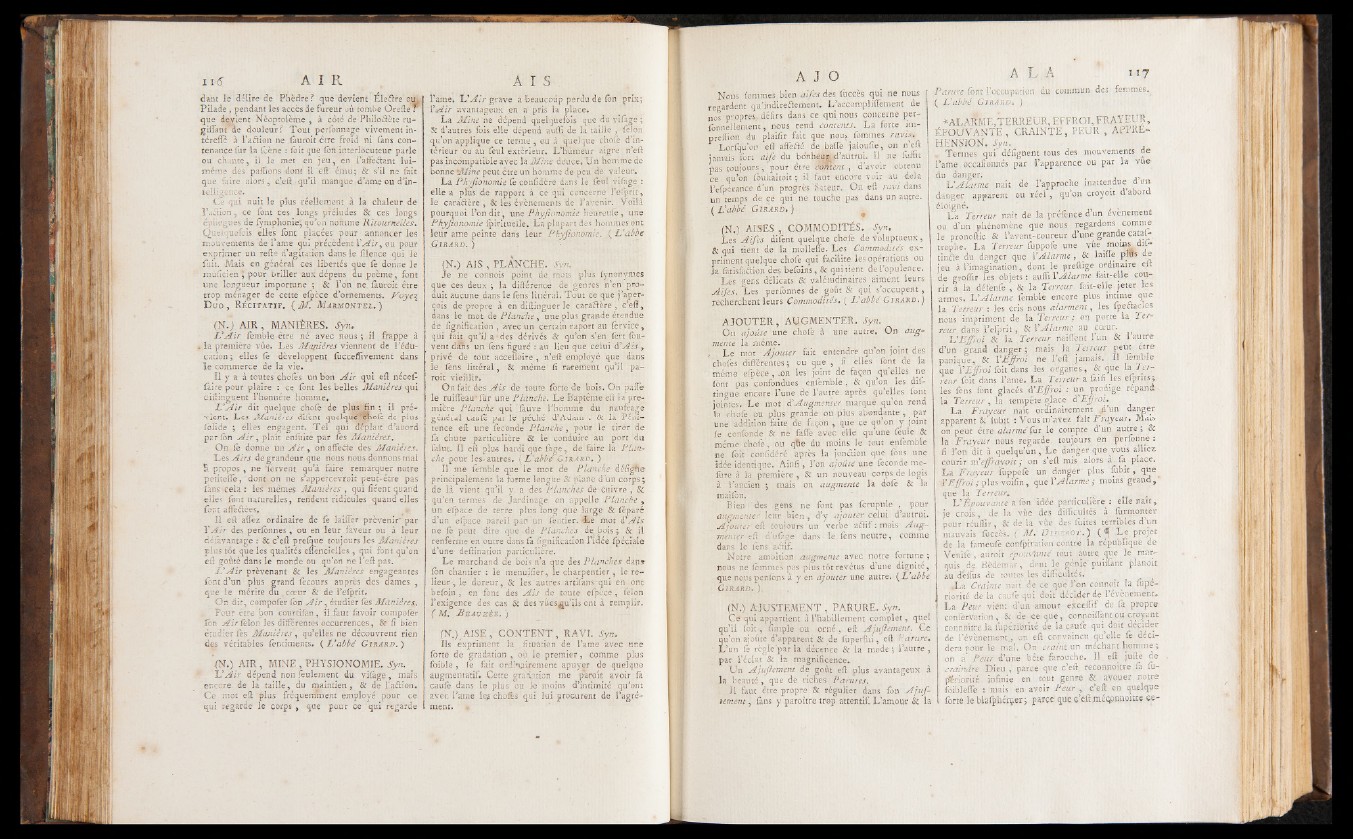 116 A I R
dans le délire de Phèdre? que devient Électre ou
Pilade, pendant les accès de fureur où tombe Oreste?
que devient Néoptolème, à côté de Philoctète ru-
gissant de douleur? Tout personnage vivement in-
téressé à l'action ne sauroit être froid ni sans con-
tenance sur la scène : soit que son interlocuteur parle
ou chante, il le met en jeu, en l'affectant lui-
même des passions dont il est ému; & s'il ne sait
que faire alors, c'est qu'il manque d'ame ou d'in-
telligence.
Ce qui nuit le plus réellement à la chaleur de
l'action, ce sont ces longs préludes & ces longs
épilogues de symphonie, qu'on nomme Ritournelles.
Quelquefois elles sont placées pour annoncer les
mouvements de l'ame qui précèdent l'Air, ou pour
exprimer un reste d'agitation dans le silence qui le
suit. Mais en général ces libertés que se donne le
musicien, pour briller aux dépens du poème, sont
une longueur importune ; & l'on ne sauroit être
trop ménager de cette espèce d'ornements. Voyez
DUO, RÉCITATIF. ( M. MARMONTEL. )
(N.) AIR, MANIÈRES. Syn.
L'Air semble être né avec nous ; il frappe à
la première vûe. Les Manières viennent de l'édu-
cation ; elles se développent successivement dans
le commerce de la vie.
Il y a à toutes choses un bon Air qui est néces-
saire pour plaire : ce sont les belles Manières qui
distinguent l'honnête homme.
L'Air dit quelque chose de plus fin ; il pré-
vient. Les Manières disent quelque chose de plus
solide ; elles engagent. Tel qui déplait d'abord
par son Air, plait ensuite par ses Manières.
On se donne un Air, on affecte des Manières.
Les Airs de grandeur que nous nous donnons mal
à propos, ne servent qu'à faire remarquer notre
petitesse, dont on ne s'appercevroit peut-être pas
sans cela : les mêmes Manières, qui siéent quand
elles sont naturelles, rendent ridicules quand elles
sont affectées.
Il est assez ordinaire de se laisser prévenir par
l'Air des personnes, ou en leur faveur ou à leur
désavantage : & c'est presque toujours les Manières
plus tôt que les qualités essencielles, qui font qu'on
est goûté dans le monde ou qu'on ne l'est pas.
L'Air prévenant & les Manières engageantes
sont d'un plus grand secours auprès des dames,
que le mérite du cœur & de l'esprit.
On dit, composer son Air, étudier ses Manières.
Pour être bon courtisan, il faut savoir composer
son Air selon les différentes occurrences, & si bien
étudier ses Manières, qu'elles ne découvrent rien
des véritables sentiments. ( L'abbé GIRARD. )
(N.) AIR, MINE, PHYSIONOMIE. Syn.
L'Air dépend non seulement du visage, mais
encore de la taille, du maintien, & de l'action.
Ce mot est plus fréquemment employé pour ce
qui regarde le corps, que pour ce qui regarde
A I S
l'ame. L'Air grave a beaucoup perdu de son prix;
l'Air avantageux en a pris la place.
La Mine ne dépend quelquefois que du visage ;
& d'autres fois elle dépend aussi de la taille, selon
qu'on applique ce terme, ou à quelque chose d'in-
térieur ou au seul extérieur. L'humeur aigre n'est
pas incompatible avec la Mine douce. Un homme de
bonne Mine peut être un homme de peu de valeur.
La Physionomie se considère dans le seul visage :
elle a plus de rapport à ce qui concerne l'esprit,
le caractère, & les évènements de l'avenir. Voilà
pourquoi l'on dit, une Physionomie heureuse, une
Physionomie spirituelle. La plupart des hommes ont
leur ame peinte dans leur Physionomie. ( L'abbé
GIRARD. )
(N.) AIS, PLANCHE. Syn.
Je ne connois point de mots plus synonymes
que ces deux ; la différence de genres n'en pro-
duit aucune dans le sens littéral. Tout ce que j'aper-
çois de propre à en distinguer le caractère, c'est,
dans le mot de Planche, une plus grande étendue
de signification, avec un certain raport au service,
qui fait qu'il a des dérivés & qu'on s'en sert sou-
vent dans un sens figuré : au lieu que celui d'Ais,
privé de tout accessoire, n'est employé que dans
le sens littéral, & même si rarement qu'il pa-
roit vieillir.
On fait des Ais de toute sorte de bois. On passe
le ruisseau sur une Planche. Le Baptême est la pre-
mière Planche qui sauve l'homme du naufrage
général causé par le péché d'Adam : & la Péni-
tence est une seconde Planche, pour le tirer de
sa chute particulière & le conduire au port du
salut. Il est plus hardi que sage, de faire la Plan-
che pour les autres. ( L'abbé GIRARD. )
Il me semble que le mot de Planche désigne
principalement la forme longue & plane d'un corps;
de là vient qu'il y a des Planches de cuivre, &
qu'en termes de Jardinage on appelle Planche,
un espace de terre plus long que large & séparé
d'un espace pareil par un sentier. Le mot d'Ais
ne se peut dire que de Planches de bois ; & il
renferme en outre dans sa signification l'idée spéciale
d'une destination particulière.
Le marchand de bois n'a que des Planches dans
son chantier : le menuisier, le charpentier, le re-
lieur, le doreur, & les autres artisans qui en ont
besoin, en font des Ais de toute espèce, selon
l'exigence des cas & des vûes qu'ils ont à remplir.
( M. BEAUZÉE. )
(N.) AISE, CONTENT, RAVI. Syn.
Ils expriment la situation de l'ame avec une
sorte de gradation, où le premier, comme plus
foible, se fait ordinairement apuyer de quelque
augmentatif. Cette gradation me paroît avoir sa
cause dans le plus ou le moins d'infinité qu'ont
avec l'ame les choses qui lui procurent de l'agré-
ment.
A J O
Nous sommes bien aises des succès qui ne nous
regardent qu'indirectement. L'accomplissement de
nos propres désirs dans ce qui nous concerne per-
sonnellement, nous rend contents. La forte im-
pression du plaisir fait que nous sommes ravis.
Lorsqu'on est affecté de basse jalousie, on n'est
jamais fort aise du bonheur d'autrui. Il ne suffit
pas toujours, pour être content, d'avoir obtenu
ce qu'on souhaitoit ; il faut encore voir au delà
l'espérance d'un progrès flateur. On est ravi dans
un temps de ce qui ne touche pas dans un autre.
( L'abbé GIRARD. )
(N.) AISES, COMMODITÉS. Syn.
Les Aises disent quelque chose de voluptueux,
& qui tient de la mollesse. Les Commodités ex-
priment quelque chose qui facilite les opérations ou
la satisfaction des besoins, & qui tient de l'opulence.
Les gens délicats & valétudinaires aiment leurs
Aises. Les personnes de goût & qui s'occupent,
recherchent leurs Commodités. ( L'abbé GIRARD. )
AJOUTER, AUGMENTER. Syn.
On ajoute une chose à une autre. On aug-
mente la même.
Le mot Ajouter fait entendre qu'on joint des
choses différentes ; ou que, si elles sont de la
même espèce, on les joint de façon qu'elles ne
sont pas confondues ensemble, & qu'on les dis-
tingue encore l'une de l'autre après qu'elles sont
jointes. Le mot d'Augmenter marque qu'on rend
la chose ou plus grande ou plus abondante, par
une addition faite de façon, que ce qu'on y joint
se confonde & ne fasse avec elle qu'une seule &
même chose, ou que du moins le tout ensemble
ne soit considéré après la jonction que sous une
idée identique. Ainsi, l'on ajoute une seconde me-
sure à la première, & un nouveau corps de logis
à l'ancien ; mais on augmente la dose & la
maison.
Bien des gens ne font pas scrupule, pour
augmenter leur bien, d'y ajouter celui d'autrui.
Ajouter est toujours un verbe actif : mais Aug-
menter est d'usage dans le sens neutre, comme
dans le sens actif.
Notre ambition augmente avec notre fortune ;
nous ne sommes pas plus tôt revêtus d'une dignité,
que nous pensons à y en ajouter une autre. ( L'abbé
GIRARD. )
(N.) AJUSTEMENT, PARURE. Syn.
Ce qui appartient à l'habillement complet, quel
qu'il soit, simple ou orné, est Ajustement. Ce
qu'on ajoute d'apparent & de superflu, est Parure.
L'un se règle par la décence & la mode ; l'autre,
par l'éclat & la magnificence.
Un Ajustement de goût est plus avantageux à
la beauté, que de riches Parures.
Il faut être propre & régulier dans son Ajus-
tement, sans y paroître trop attentif. L'amour & la
A L A 117
Parure font l'occupation du commun des femmes.
( L'abbé GIRARD. )
*ALARME, TERREUR, EFFROI, FRAYEUR,
ÉPOUVANTE, CRAINTE, PEUR, APPRÉ-
HENSION. Syn.
Termes qui désignent tous des mouvements de
l'ame occasionnés par l'apparence ou par la vûe
du danger.
L'Alarme nait de l'approche inattendue d'un
danger apparent ou réel, qu'on croyoit d'abord
éloigné.
La Terreur nait de la présence d'un évènement
ou d'un phénomène que nous regardons comme
le pronostic & l'avant-coureur d'une grande catas-
trophe. La Terreur suppose une vûe moins dis-
tincte du danger que l'Alarme, & laisse plus de
jeu à l'imagination, dont le prestige ordinaire est
de grossir les objets : aussi l'Alarme fait-elle cou-
rir à la défense, & la Terreur fait-elle jeter les
armes. L'Alarme semble encore plus intime que
la Terreur : les cris nous alarment, les spectacles
nous impriment de la Terreur : on porte la Ter-
reur dans l'esprit, & l'Alarme au cœur.
L'Effroi & la Terreur naissent l'un & l'autre
d'un grand danger ; mais la Terreur peut être
panique, & l'Effroi ne l'est jamais. Il semble
que l'Effroi soit dans les organes, & que la Ter-
reur soit dans l'ame. La Terreur a saisi les esprits;
les sens sont glacés d'Effroi : un prodige répand
la Terreur, la tempête glace d'Effroi.
La Frayeur nait ordinairement d'un danger
apparent & subit : Vous m'avez fait Frayeur. Mais
on peut être alarmé sur le compte d'un autre ; &
la Frayeur nous regarde toujours en personne :
si l'on dit à quelqu'un, Le danger que vous alliez
courir m'effrayoit, on s'est mis alors à sa place.
La Frayeur suppose un danger plus subit, que
l'Effroi ; plus voisin, que l'Alarme ; moins grand,
que la Terreur.
L'Épouvante a son idée particulière : elle nait,
je crois, de la vûe des difficultés à surmonter
pour réussir, & de la vûe des suites terribles d'un
mauvais succès. ( M. DIDEROT. ) ( ¶ Le projet
de la fameuse conspiration contre la république de
Venise, auroit épouvanté tout autre que le mar-
quis de Bédemar, dont le génie puissant planoit
au dessus de toutes les difficultés.
La Crainte nait de ce que l'on connoît la supé-
riorité de la cause qui doit décider de l'évènement.
La Peur vient d'un amour excessif de sa propre
conservation, & de ce que, connoissant ou croyant
connoître la supériorité de la cause qui doit décider
de l'évènement, on est convaincu qu'elle se déci-
dera pour le mal. On craint un méchant homme ;
on a Peur d'une bête farouche. Il est juste de
craindre Dieu, parce que c'est reconnoître sa su-
périorité infinie en tout genre & avouer notre
foiblesse : mais en avoir Peur, c'est en quelque
sorte le blasphémer ; parce que c'est méconnoître ce-